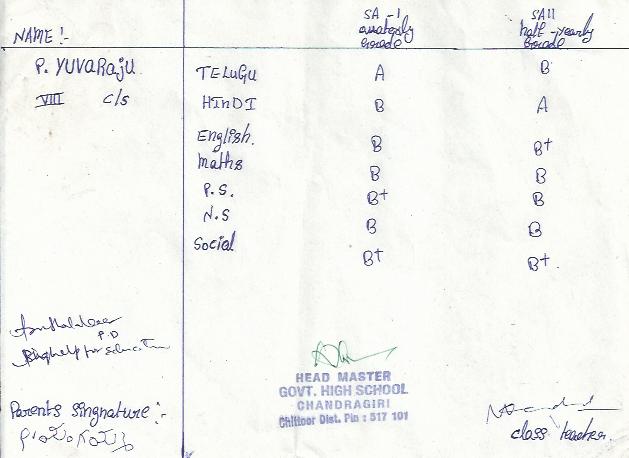 SA - I SA II
NAME :- quaterly half - yearly
Grade Grade
P. YUVARAJU TELUGU A B
VIII C/S HINDI B A
English. B B+
maths B B
P.S. B+ B
N.S B B
Social B+ B+
P.D
HEAD MASTER
GOVT. HIGH SCHOOL
CHANDRAGIRI
Chittoor Dist. Pin : 517 101
Parents singnature :-
class teacher.